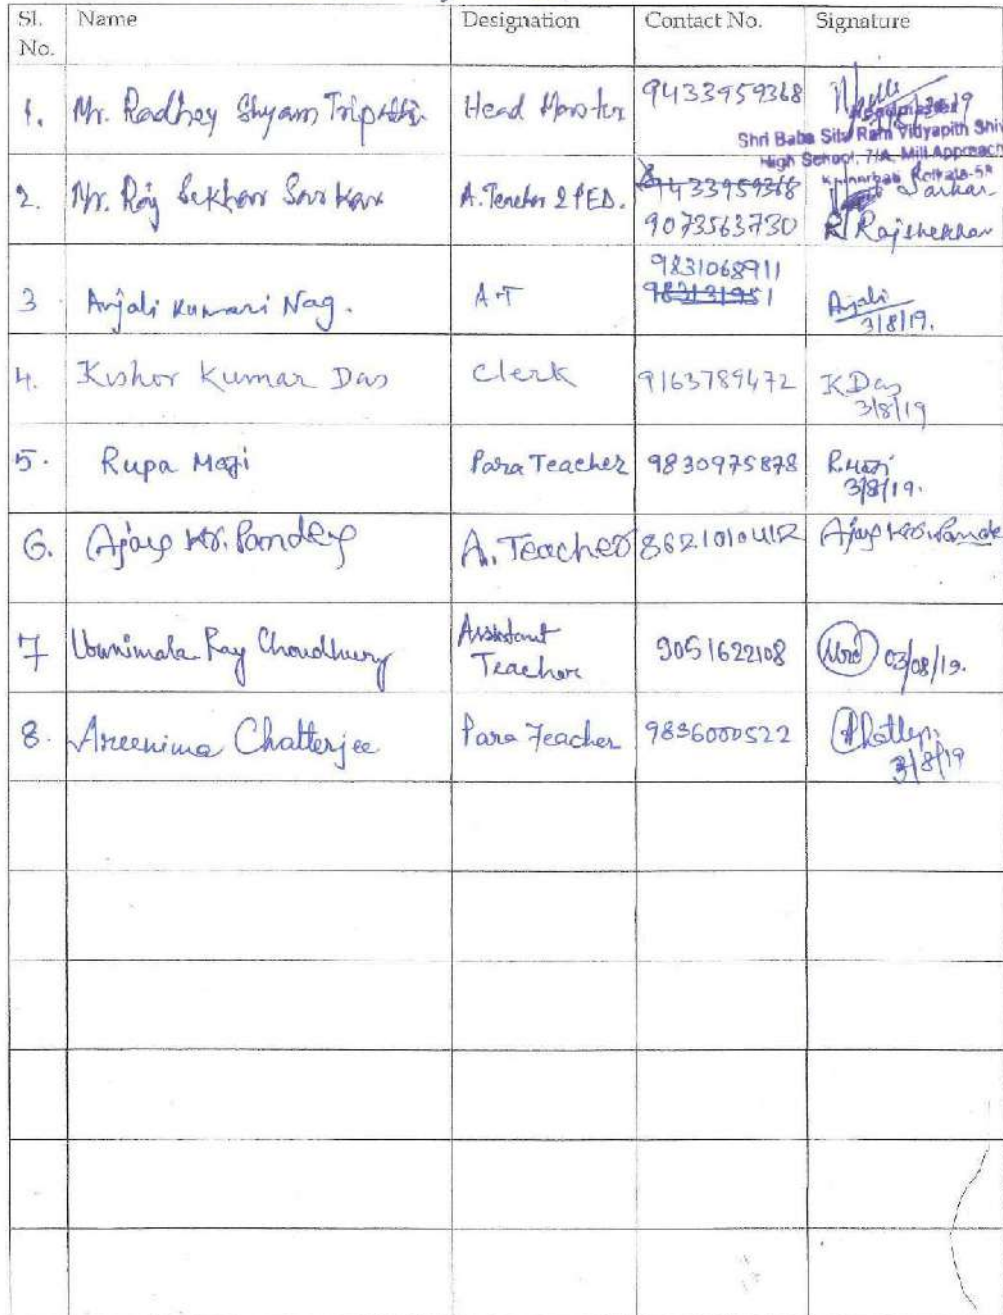 Sl. No. Name Designation Contact No. Signature
1. Mr. Radhey Shyam Tripathi Head Master 9433959368
Headmaster
Shri Baba Sita Ram Vidyapith Shiv
High School, 7/A, Mill Approach
2. Mr. Raj Sekhar Sarkar A. Teacher 2 PED. 9433959368 Sarkar
9073563730 R Rajshekhar
9831068911
3 Anjali Kumari Nag. A.T Anjali
3/8/19.
4. Kishor Kumar Das Clerk 9163789472 K Das
3/8/19
5. Rupa Maji Para Teacher 9830975878 R.Maji
3/8/19.
6. Ajay Kr. Pandey A. Teacher 8621010412 Ajay Kr. Pande
7 Ray Choudhury Assistant Teacher 9051622108 03/08/19.
8. Areenima Chatterjee Para Teacher 9836000522
3/8/19